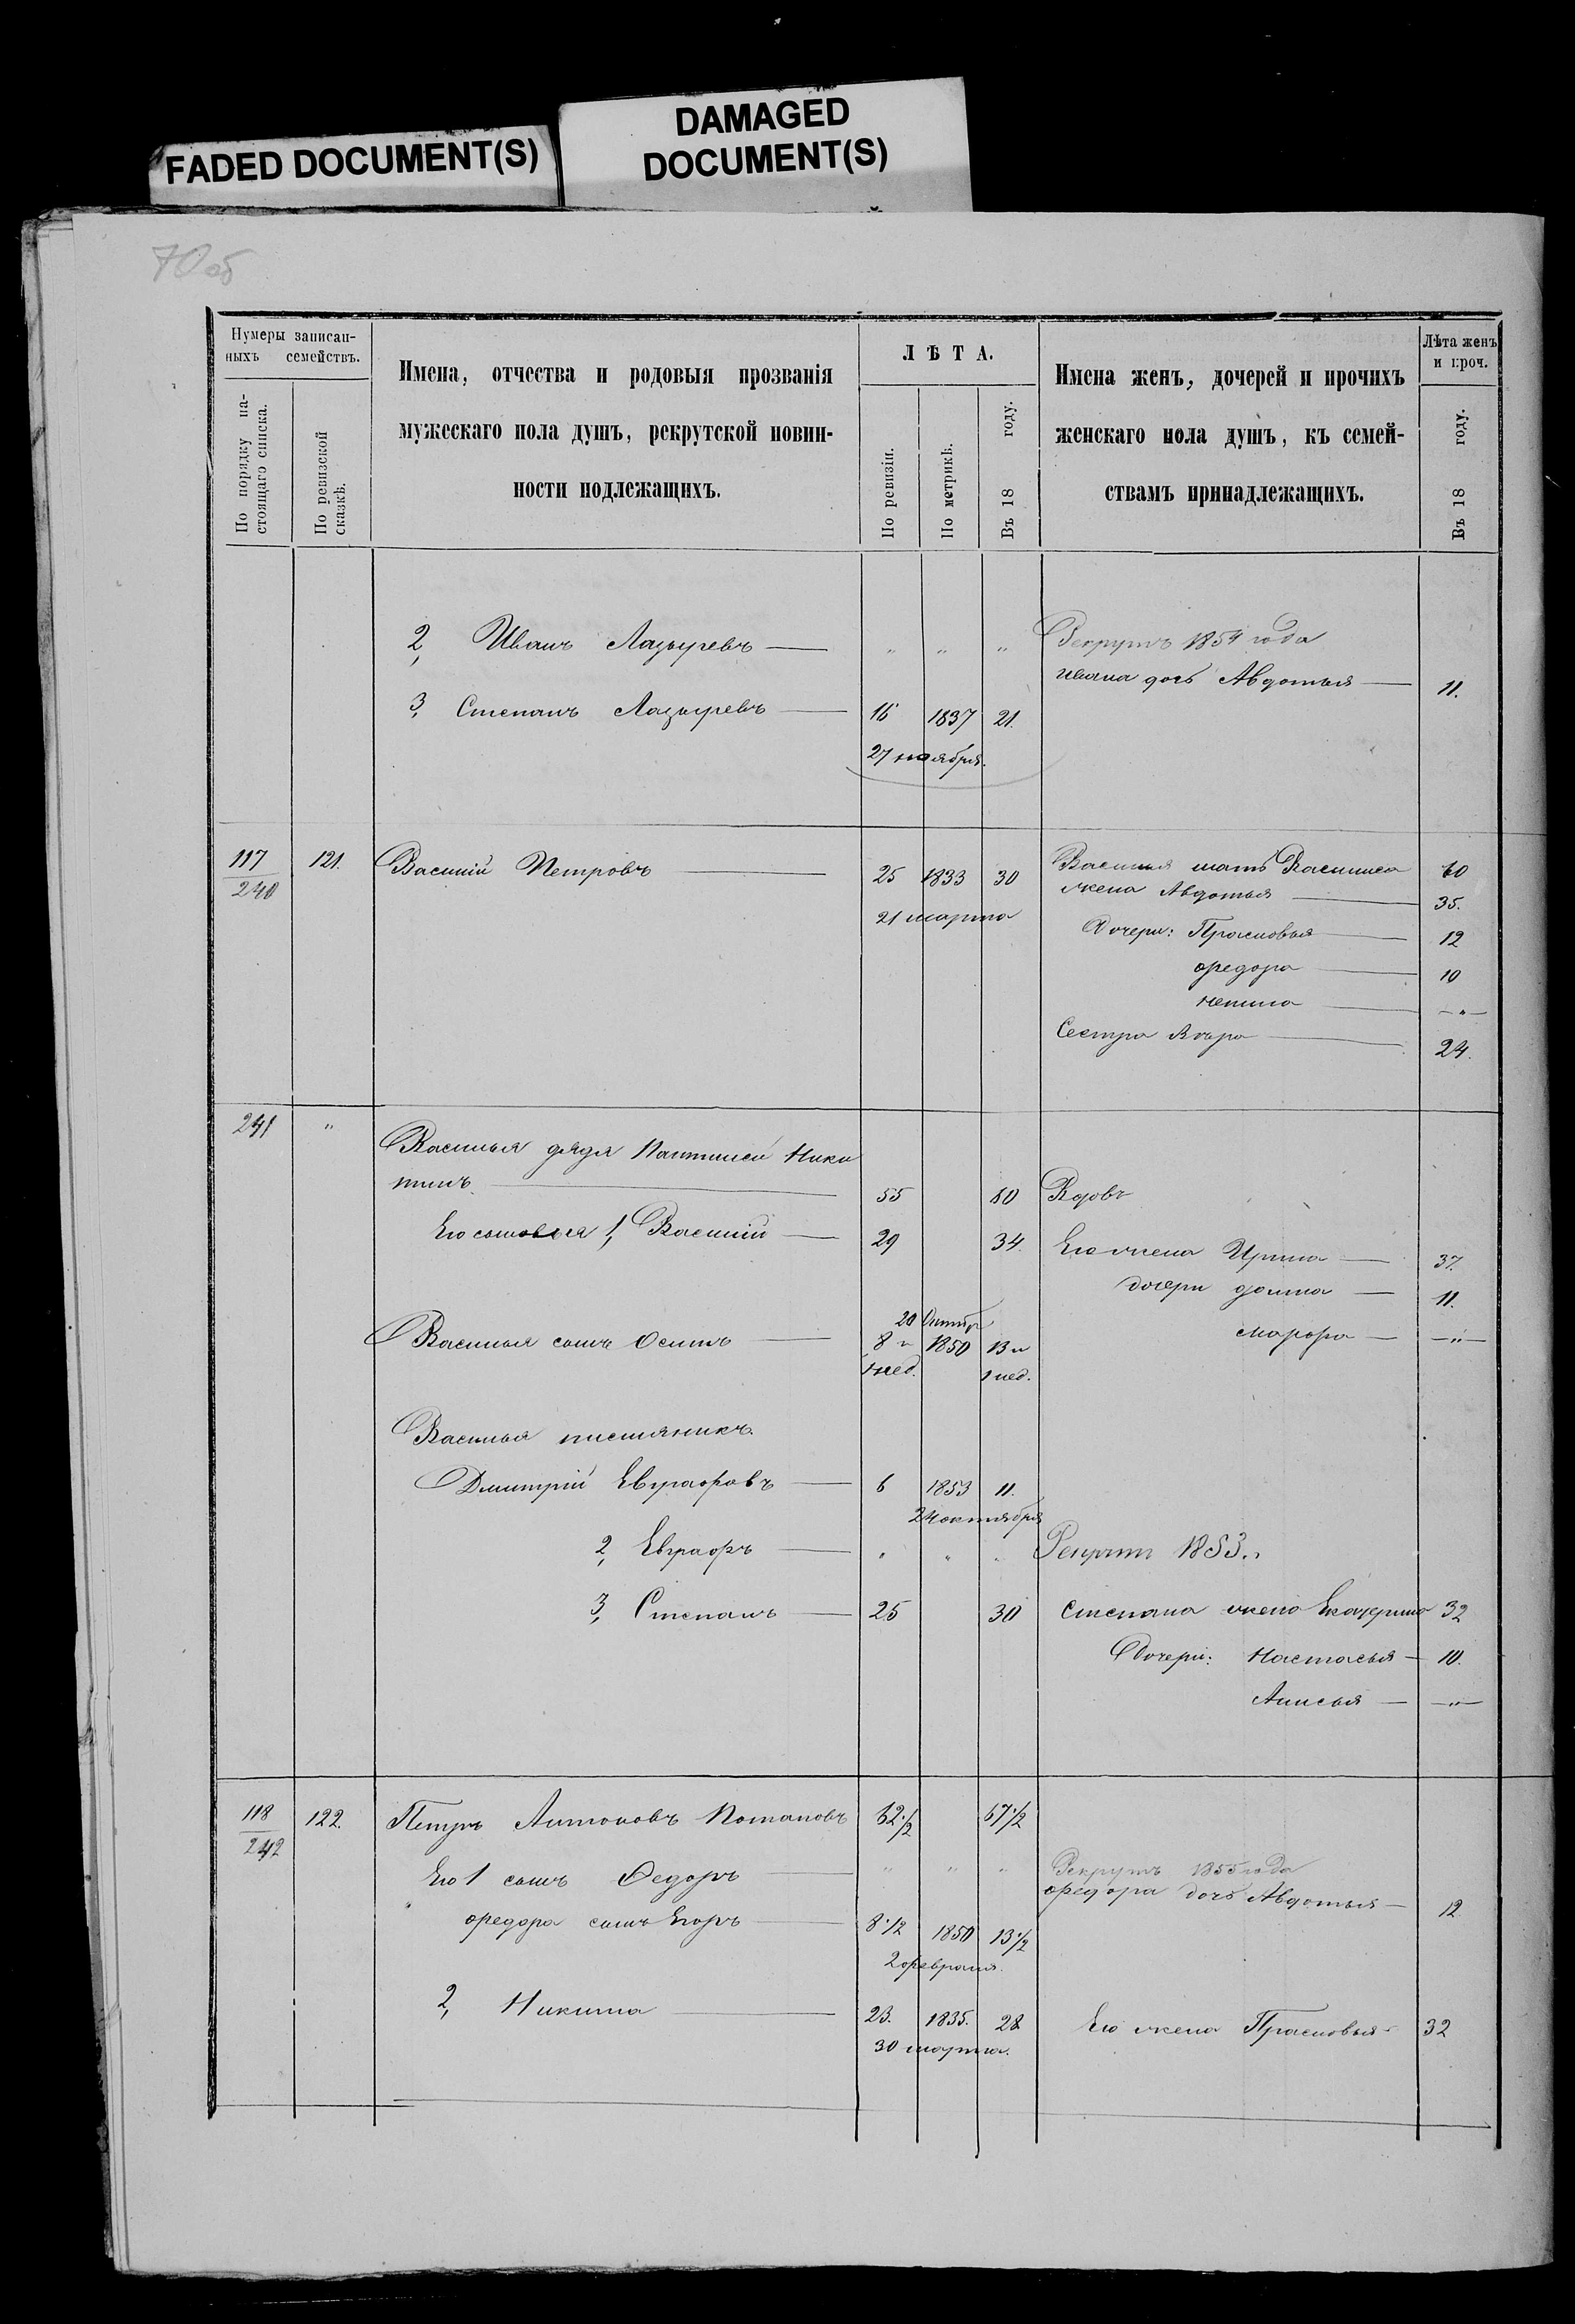 FADED DOCUMENT(S)
DAMAGED
DOCUMENT(S)
70 об
Нумеры записан-
ныхъ семействъ.
По порядку на-
стоящаго списка.
По ревизской
сказкѣ.
Имена, отчества и родовыя прозванія
мужескаго пола душъ, рекрутской повин-
ности подлежащихъ.
ЛѢТА.
По ревизіи.
По метрикѣ.
Въ 18 году.
Имена женъ, дочерей и прочихъ
женскаго пола душъ, къ семей-
ствамъ принадлежащихъ.
Лѣта женъ
и проч.
Въ 18 году.
2, Иванъ Лазыревъ — " " " Рекрутъ 1854 года
Ивана дочь Авдотья — 11.
3, Степанъ Лазыревъ — 16 1837 21.
27 ноября.
117 121. Василій Петровъ — 25 1833 30 Василья мать Василиса 60
240 21 марта жена Авдотья — 35.
Дочери: Прасковья — 12
Федора — 10
— " —
Сестра Вѣра — 24.
241 " Василья дядя Пантилей Ники
тинъ — 55 60 Вдовъ
Его сыновья 1, Василий — 29 34. Его жена Ирина — 37.
дочери — 11.
20 Октябр
Василья сынъ Осипъ — 8 и 1850 13 и Марфа — — " —
1 нед. 1 нед.
Василья племяникъ.
Дмитрій Евграфовъ — 6 1853 11.
24 октября
2, Евграфъ — " " " Рекрутъ 1853.
3, Степанъ — 25 30 Степана жена Екатерина 32
Дочери: Настасья — 10.
Анисья — — " —
118 122. Петръ Антоновъ Потаповъ 62 1/2 67 1/2
242
Его 1 сынъ Федоръ — " " " Рекрутъ 1855 года
Федора дочь Авдотья — 12
Федора сынъ Егоръ — 8 1/2 1850 13 1/2
2 февраля.
2, Никита — 23. 1835. 28 Его жена Прасковья — 32
30 марта.